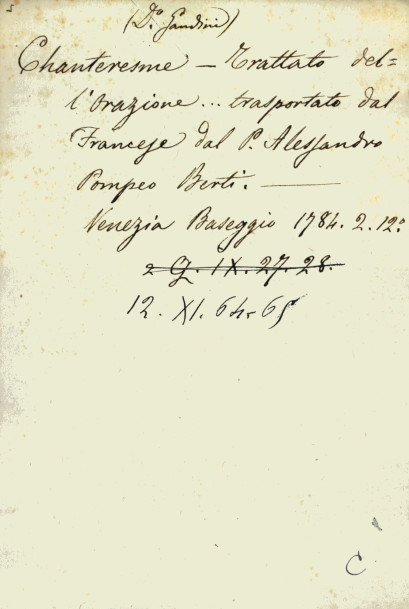 (D.º Gandini)
Chanteresme — Trattato del=
l'Orazione... trasportato dal
Francese dal P. Alessandro
Pompeo Berti. —
Venezia Baseggio 1784. 2. 12º
2 G. IX. 27. 28.
12. XI. 64-65
C